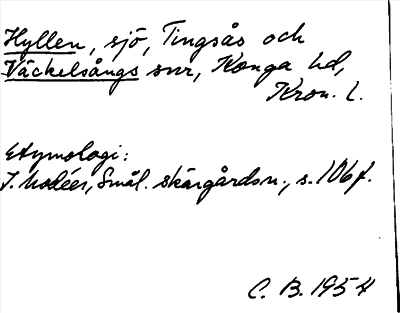 Hyllen, sjö, Tingsås och
Väckelsångs snr, Konga hd,
Kron. l.
Etymologi:
I. Modéer, Smål. skärgårdsn., s. 106 f.
C. B. 1954